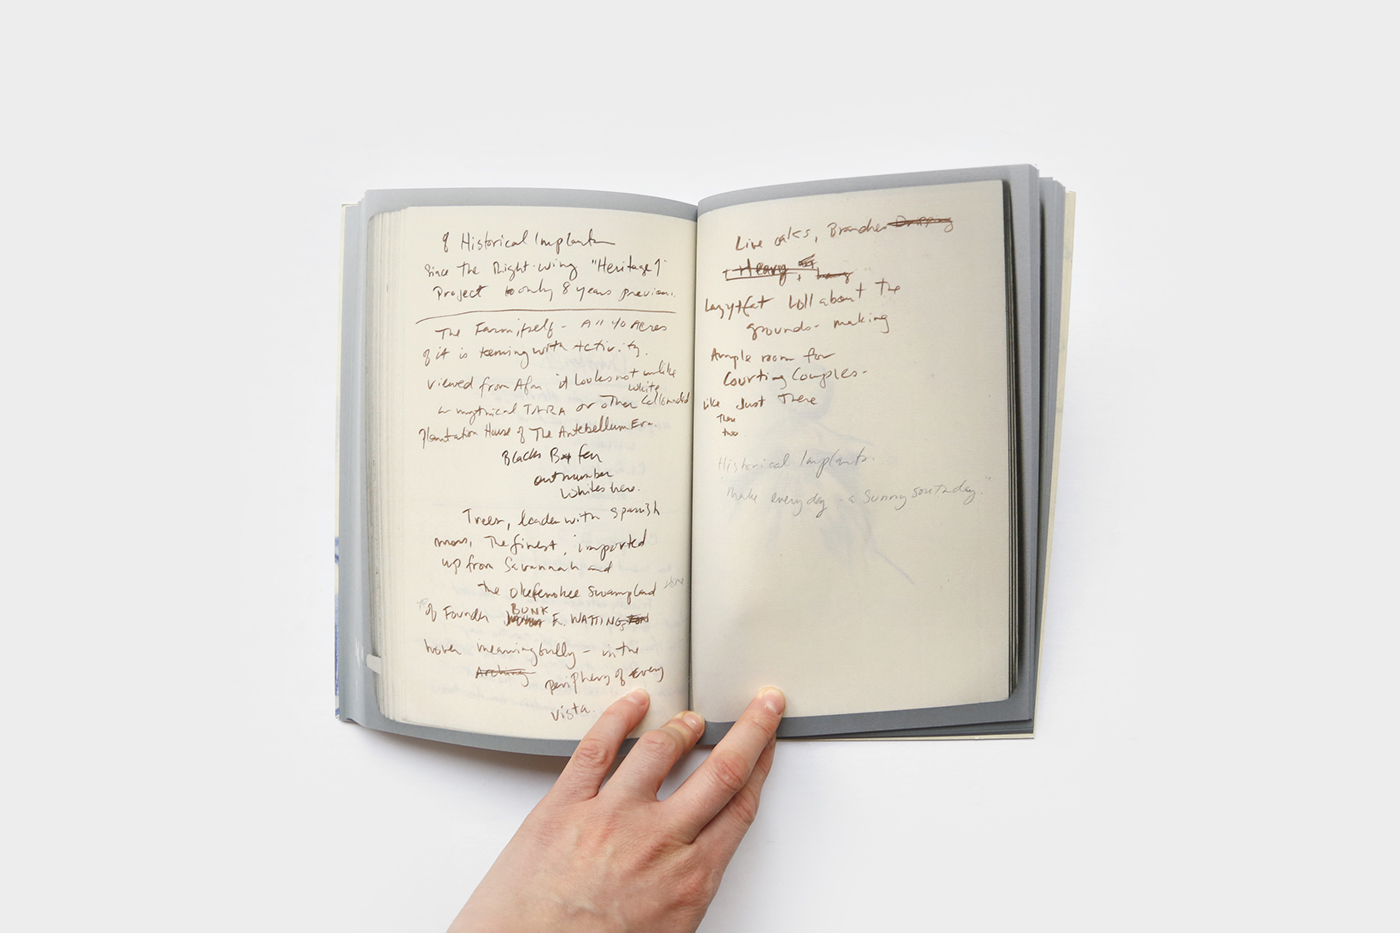 of Historical Implants
Since The Right-wing "Heritage"
Project only 8 years previous.
The Farm itself - All 40 Acres
of it is teeming with Activity.
Viewed from Afar it Looks not unlike
a mythical TARA or other white Collonaded
Plantation House of The Antebellum Era.
Blacks far
outnumber
Whites here.
Trees, laden with Spanish
moss, The finest, imported
up from Savannah and
the Okefenokee Swampland
of Founder BUNK E. WATTING
hover meaningfully - in the
Arching
periphery of every
vista.
Live oaks, Branches Drooping
+ Heavy
Lazy + fat loll about The
grounds - making
Ample room for
Courting Couples -
Like Just There
There
two
Historical Implants.
"Make everyday - a Sunny South day."